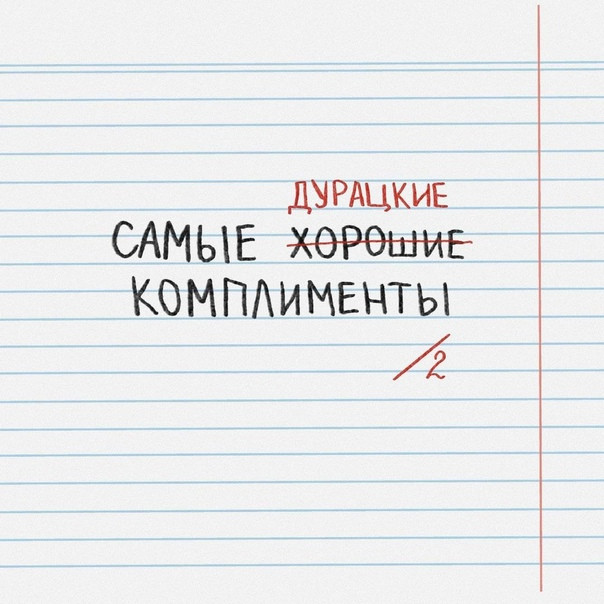 ДУРАЦКИЕ
САМЫЕ ХОРОШИЕ
КОМПЛИМЕНТЫ
/2